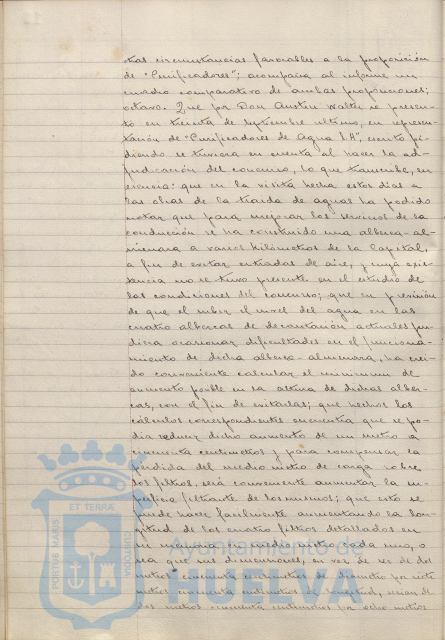 tras circunstancias favorables a la proposición
de "Purificadores"; acompaña al informe un
cuadro comparativo de ambas proposiciones;
octavo. Que por Don Austin Walter se presen-
tó en treinta de Septiembre último, en represen-
tación de "Purificadores de Agua S.A", escrito pi-
diendo se tuviera en cuenta al hacer la ad-
judicación del concurso, lo que transcribe, en
esencia: que en la visita hecha estos días a
las obras de la traida de aguas ha podido
notar que para mejorar los servicios de la
conducción se ha construido una alberca-al-
menara a varios kilómetros de la Capital,
a fin de evitar entradas de aire, y cuya exis-
tencia no se tuvo presente en el estudio de
las condiciones del concurso; que en previsión
de que el subir el nivel del agua en las
cuatro albercas de decantación actuales pu-
diera ocasionar dificultades en el funciona-
miento de dicha alberca-almenara, ha crei-
do conveniente calcular el minimum de
aumento posible en la altura de dichas alber-
cas, con el fin de evitarlas; que hechos los
cálculos correspondientes encuentra que se po-
dia reducir dicho aumento de un metro a
cincuenta centímetros y para compensar la
pérdida del medio metro de carga sobre
los filtros, será conveniente aumentar la su-
perficie filtrante de los mismos; que esto se
puede hacer facilmente aumentando la lon-
gitud de los cuatro filtros detallados en
su memoria en medio metro cada uno, o
sea que sus dimensiones, en vez de ser de dos
metros cincuenta centímetros de diametro por siete
metros cincuenta centímetros de longitud, serían de
dos metros cincuenta centímetros por ocho metros
ET TERRÆ
PORTUS MARIS
CUSTODIA
Ayuntamiento de
HUELVA